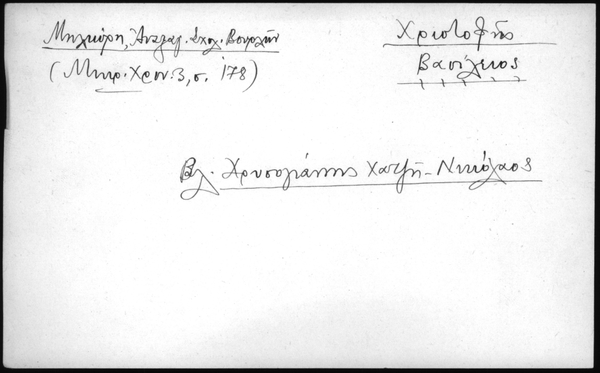 Μηλιώρη, Αναξαγ. Σχολ. Βουρλών
(Μικρ. Χρον. 3, σ. 178)
Χριστοφής
Βασίλειος
Βλ. Χρυσογιάννης Χατζή-Νικόλαος